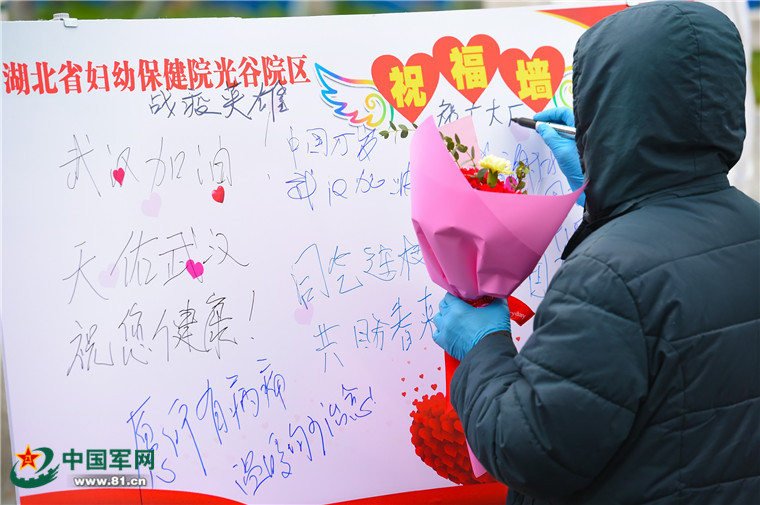 湖北省妇幼保健院光谷院区
祝福墙
战疫英雄
武汉加油!
中国万岁
武汉加油
天佑武汉
祝您健康!
同气连枝
共盼春
愿所有病痛
温暖的治愈
中国军网
www.81.cn